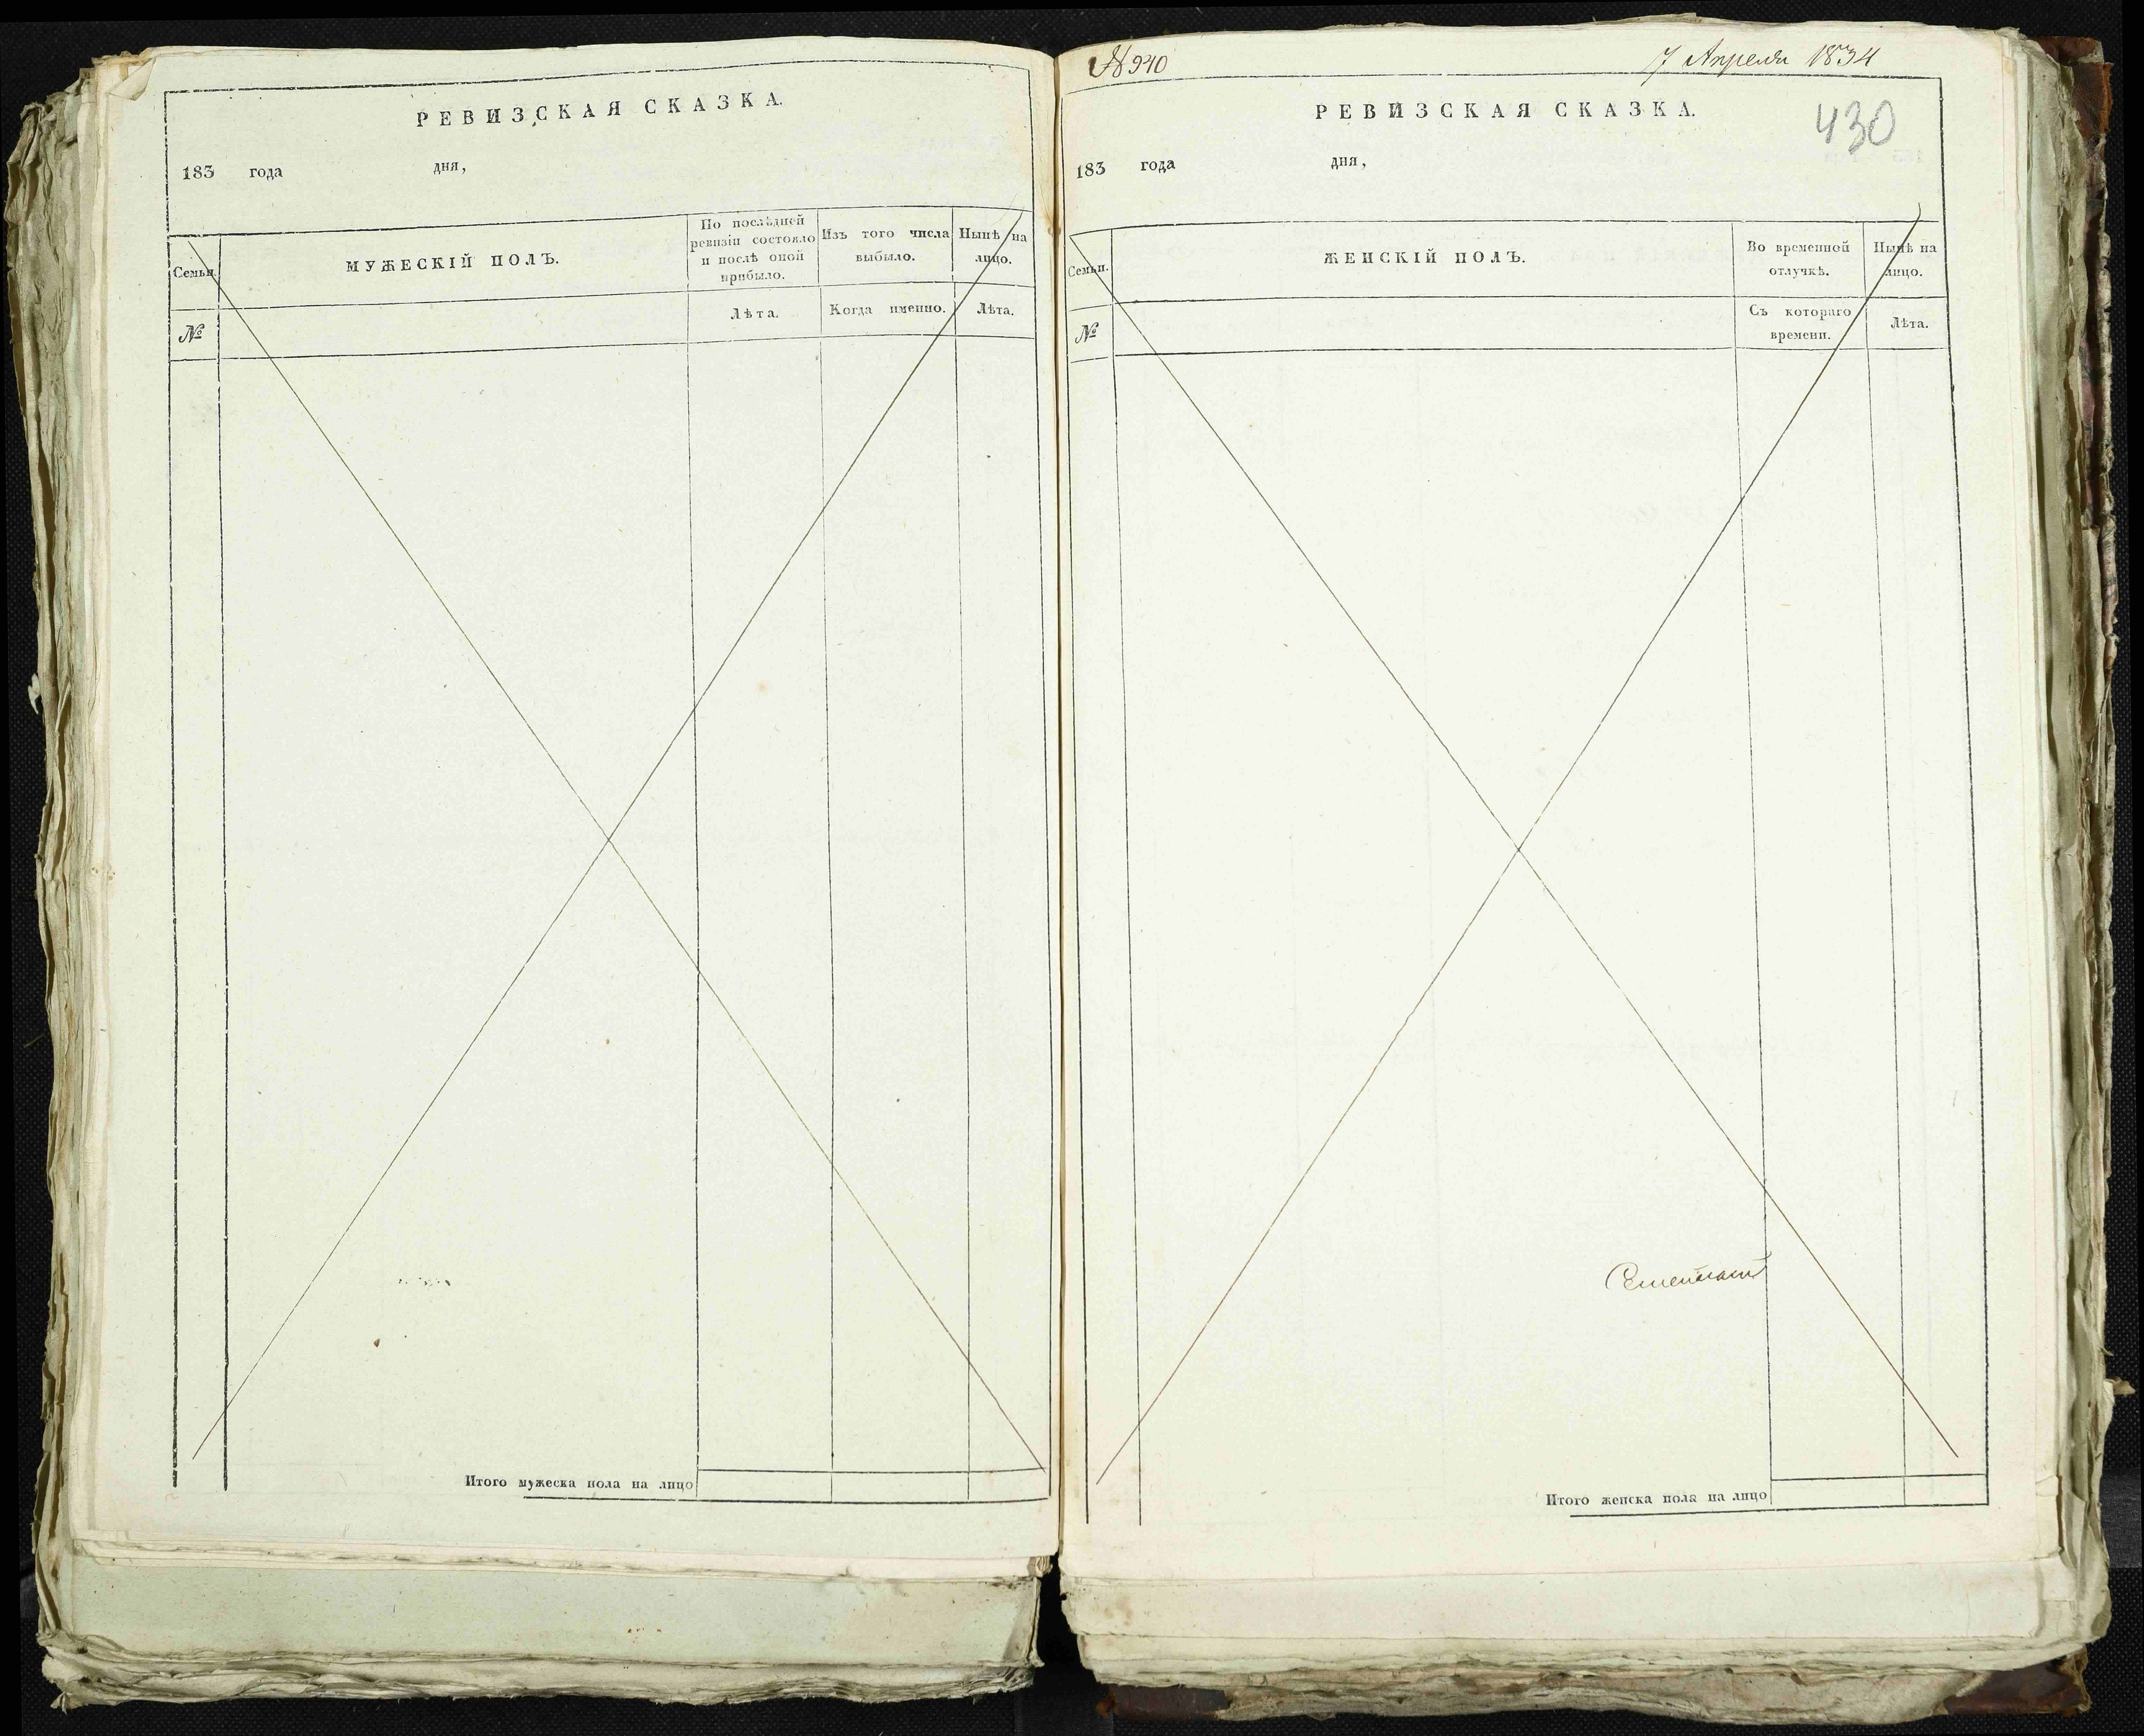 РЕВИЗСКАЯ СКАЗКА.
183 года дня,
Семьи.
МУЖЕСКІЙ ПОЛЪ.
По послѣдней ревизіи состояло и послѣ оной прибыло.
Изъ того числа выбыло.
Нынѣ на лицо.
№
Лѣта.
Когда именно.
Лѣта.
Итого мужеска пола на лицо
№ 940
7 Апреля 1834
РЕВИЗСКАЯ СКАЗКА.
430
183 года дня,
Семьи.
ЖЕНСКІЙ ПОЛЪ.
Во временной отлучкѣ.
Нынѣ на лицо.
№
Съ котораго времени.
Лѣта.
Итого женска пола на лицо